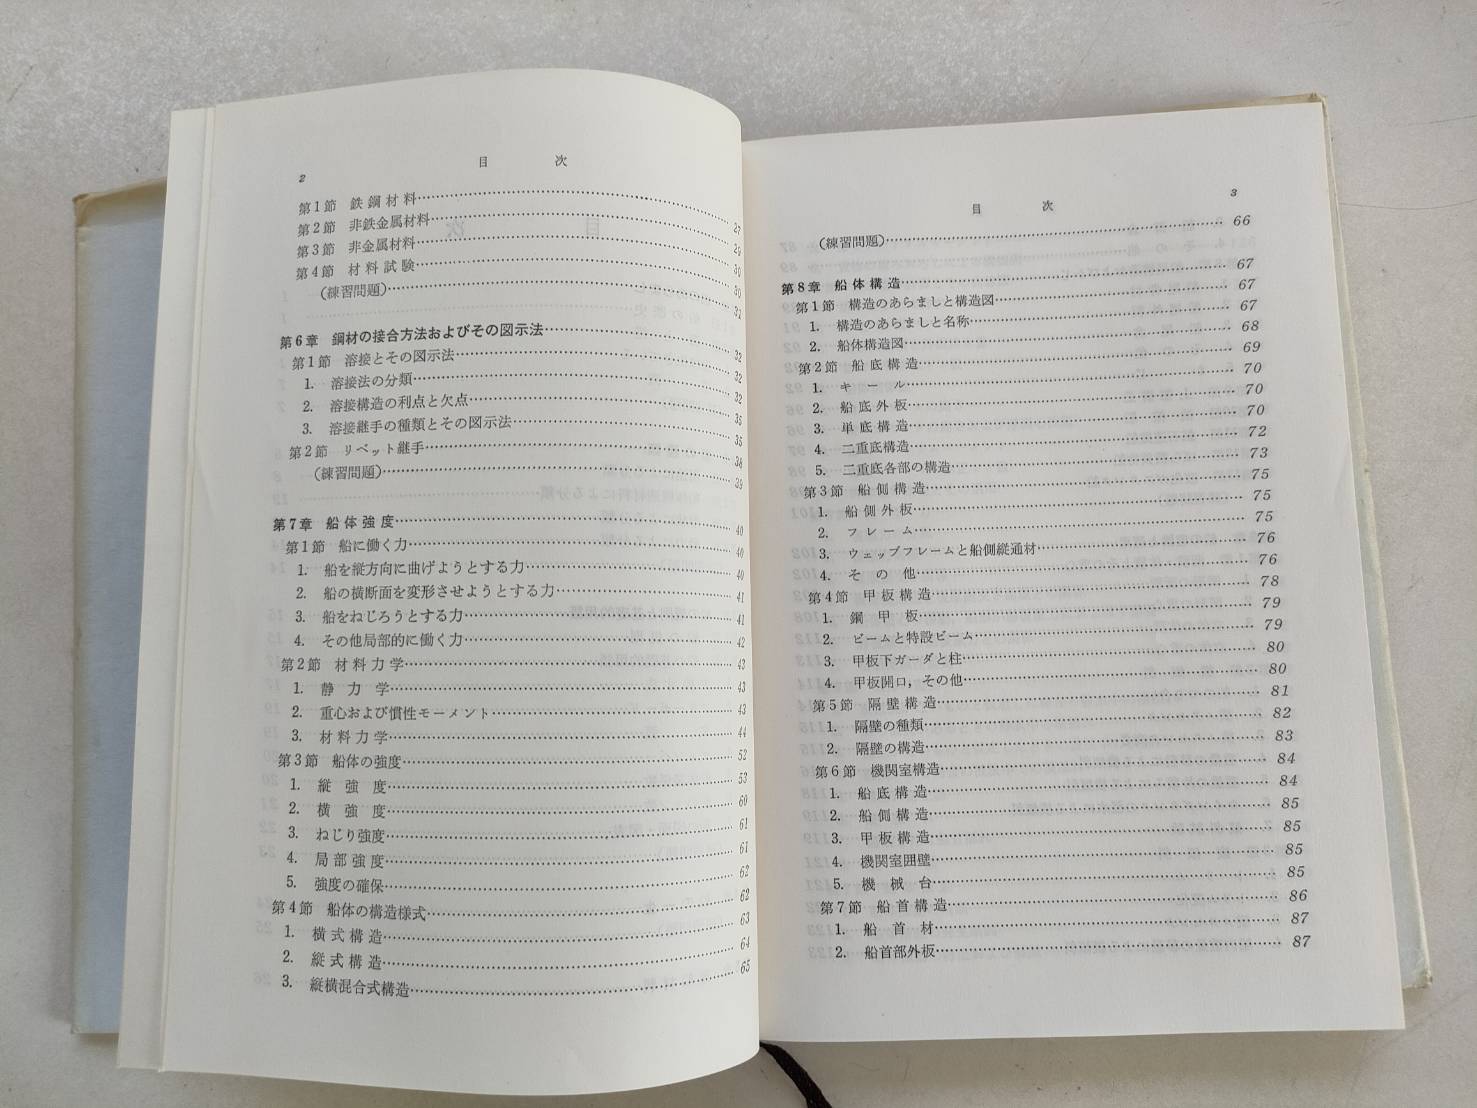 2
目 次
第1節 鉄鋼材料……27
第2節 非鉄金属材料……29
第3節 非金属材料……30
第4節 材料試験……30
(練習問題)……31
第6章 鋼材の接合方法およびその図示法……32
第1節 溶接とその図示法……32
1. 溶接法の分類……32
2. 溶接構造の利点と欠点……35
3. 溶接継手の種類とその図示法……35
第2節 リベット継手……38
(練習問題)……39
第7章 船体強度……40
第1節 船に働く力……40
1. 船を縦方向に曲げようとする力……40
2. 船の横断面を変形させようとする力……41
3. 船をねじろうとする力……41
4. その他局部的に働く力……42
第2節 材料力学……43
1. 静力学……43
2. 重心および慣性モーメント……43
3. 材料力学……44
第3節 船体の強度……52
1. 縦強度……53
2. 横強度……60
3. ねじり強度……61
4. 局部強度……61
5. 強度の確保……62
第4節 船体の構造様式……62
1. 横式構造……63
2. 縦式構造……64
3. 縦横混合式構造……65
3
目 次
(練習問題)……66
第8章 船体構造……67
第1節 構造のあらましと構造図……67
1. 構造のあらましと名称……67
2. 船体構造図……68
第2節 船底構造……69
1. キール……70
2. 船底外板……70
3. 単底構造……70
4. 二重底構造……72
5. 二重底各部の構造……73
第3節 船側構造……75
1. 船側外板……75
2. フレーム……75
3. ウェッブフレームと船側縦通材……76
4. その他……76
第4節 甲板構造……78
1. 鋼甲板……79
2. ビームと特設ビーム……79
3. 甲板下ガーダと柱……80
4. 甲板開口，その他……80
第5節 隔壁構造……81
1. 隔壁の種類……82
2. 隔壁の構造……83
第6節 機関室構造……84
1. 船底構造……84
2. 船側構造……85
3. 甲板構造……85
4. 機関室囲壁……85
5. 機械台……85
第7節 船首構造……86
1. 船首材……87
2. 船首部外板……87